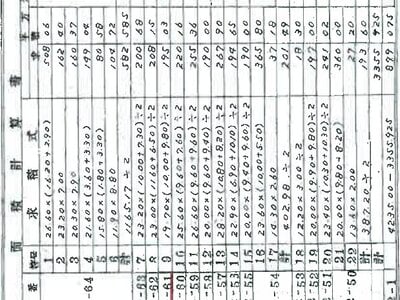 面積計算書
番 符号 求積式 平方
-64 1 26.60×(16.20+2.90) 508 06
2 23.20×7.00 162 40
3 20.30×7.90 160 37
4 21.60×(3.60+3.30) 149 04
5 15.80×(1.80+3.30) 80 58
6 11.90×8.80 104 72
計 1165.17÷2 582 585
-63 7 23.20×(10.00+7.30)÷2 200 68
-62 8 ÷2 208
-61 9 19.70×(10.00+9.80)÷2 195 03
10 ÷2 220
11 26.60×(9.60+9.60)÷2 255 36
-58 12 20.00×(9.60+9.40)÷2 190 00
-57 13 28.20×(10.80+8.20)÷2 267 90
14 22.90×(6.90+10.10)÷2 194 65
-55 15 20.00×(9.40+9.60)÷2 190 00
16 23.60×(10.00+5.50) 365 80
-54 17 14.30×2.60 37 18
計 402.98÷2 201 49
-53 18 12.20×3.00÷2 18 30
-52 19 20.00×(9.90+9.80)÷2 197 00
-51 20 23.40×(10.30+10.30)÷2 241 02
21 20.00×(9.80+8.20) 360 00
-50 22 13.60×2.00 27 20
計 387.20÷2 193 60
計 3355 925
2-1 4235.00-3355.925 879 075